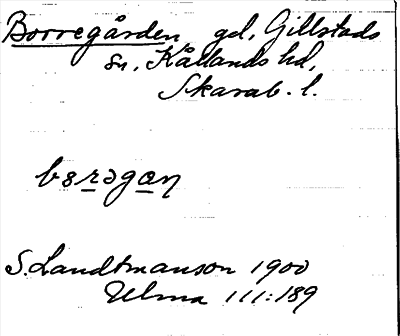 Borregården, gd, Gillstads
sn, Kållands hd,
Skarab. l.
bɜrəgaŋ
S. Landtmanson 1900
Ulma 111:189